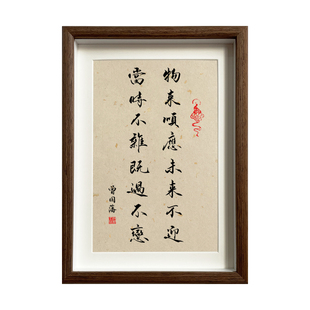 物来順應未来不迎
當時不雜既過不戀
曾国藩